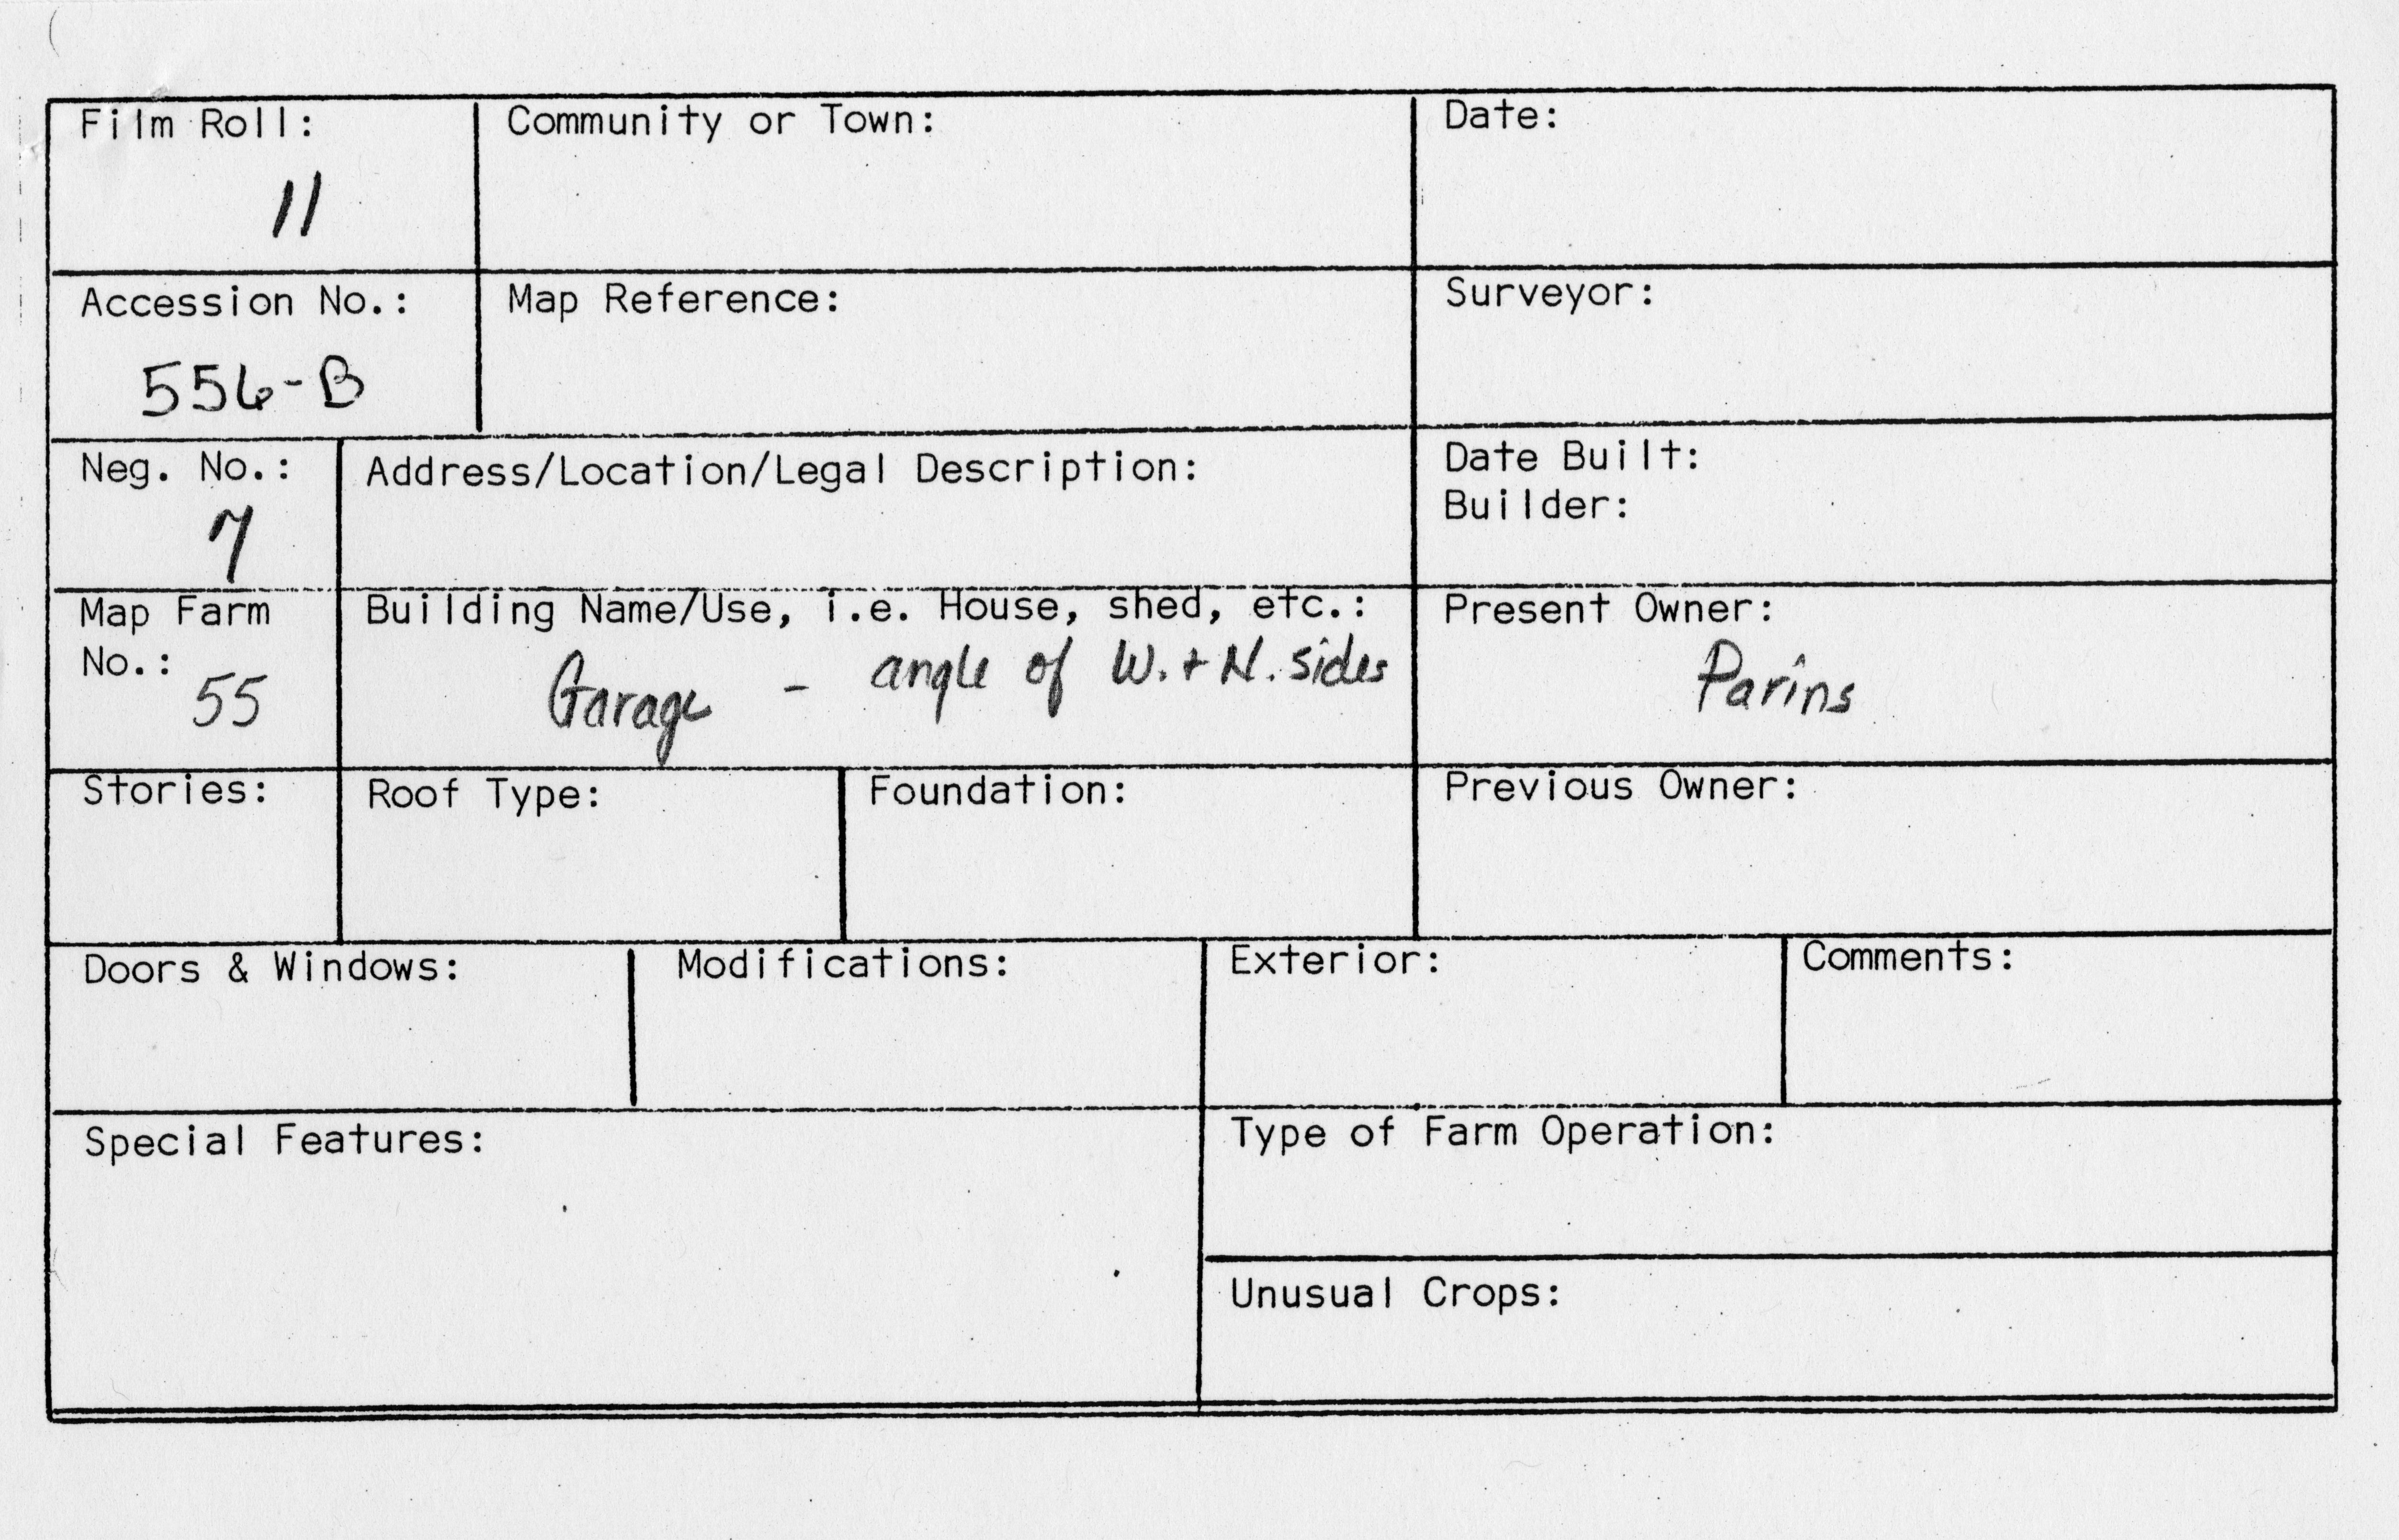 Film Roll:
11
Community or Town:
Date:
Accession No.:
556-B
Map Reference:
Surveyor:
Neg. No.:
7
Address/Location/Legal Description:
Date Built:
Builder:
Map Farm
No.:
55
Building Name/Use, i.e. House, shed, etc.:
Garage - angle of W. + N. sides
Present Owner:
Parins
Stories:
Roof Type:
Foundation:
Previous Owner:
Doors & Windows:
Modifications:
Exterior:
Comments:
Special Features:
Type of Farm Operation:
Unusual Crops: